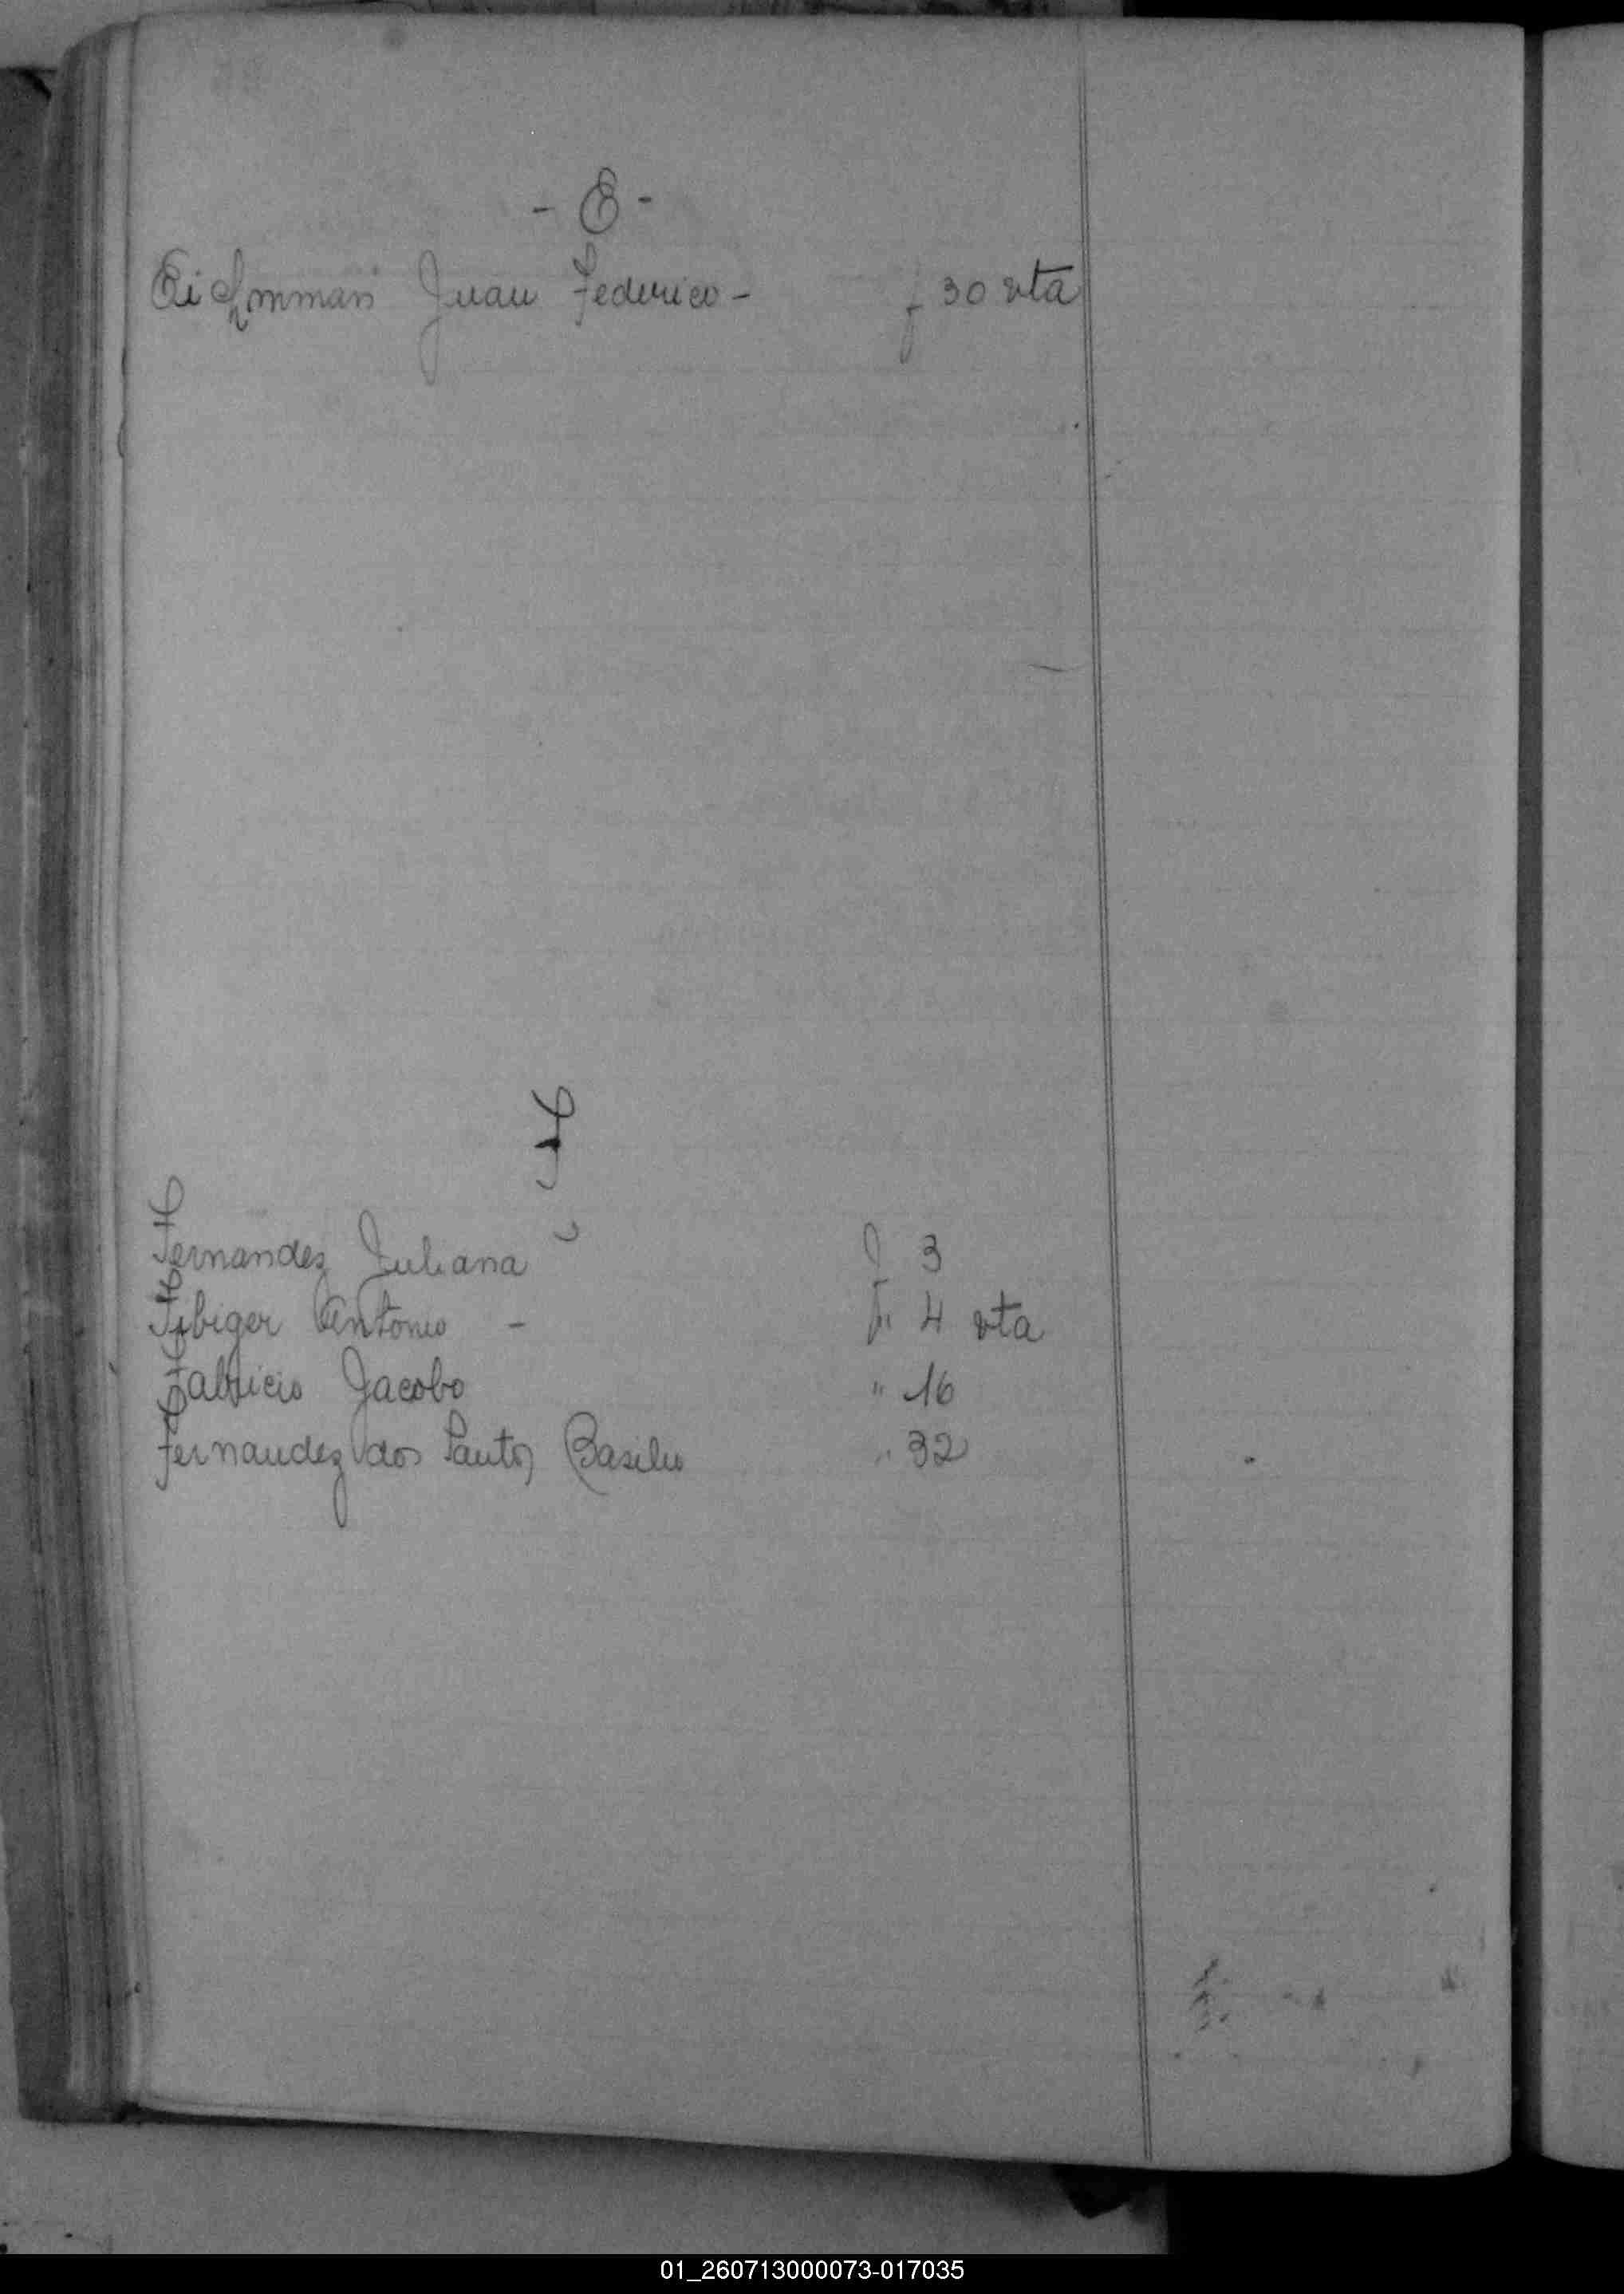 - E -
Eichmman Juan Federico - f 30 vta
F
Fernandez Juliana f 3
Fibiger Antonio - f. 4 vta
Fabricio Jacobo " 16
Fernandez dos Santos Basilio " 32
01_260713000073-017035